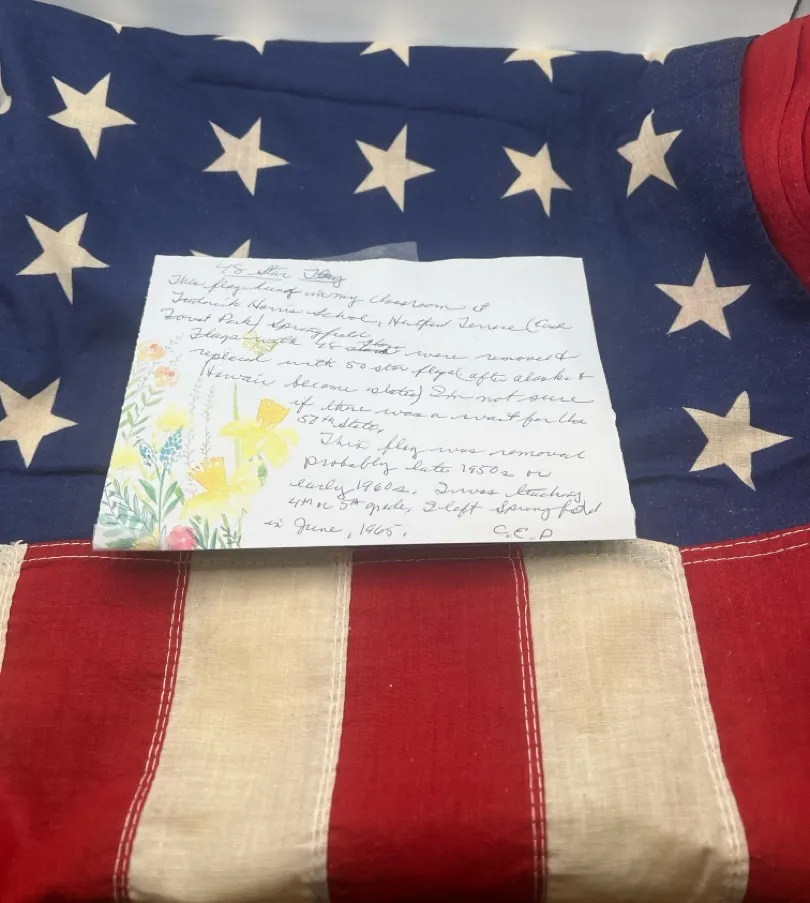 48 Star Flag
This flag hung in my classroom at
Frederick Harris School, Hartford Terrace (East
Forest Park) Springfield
Flags with 48 stars were removed &
replaced with 50 star flags (after alaska &
Hawaii became states) I'm not sure
if there was a wait for the
50th state.
This flag was removed
probably late 1950s or
early 1960s. I was teaching
4th or 5th grade. I left Springfield
in June, 1965. C.E.P